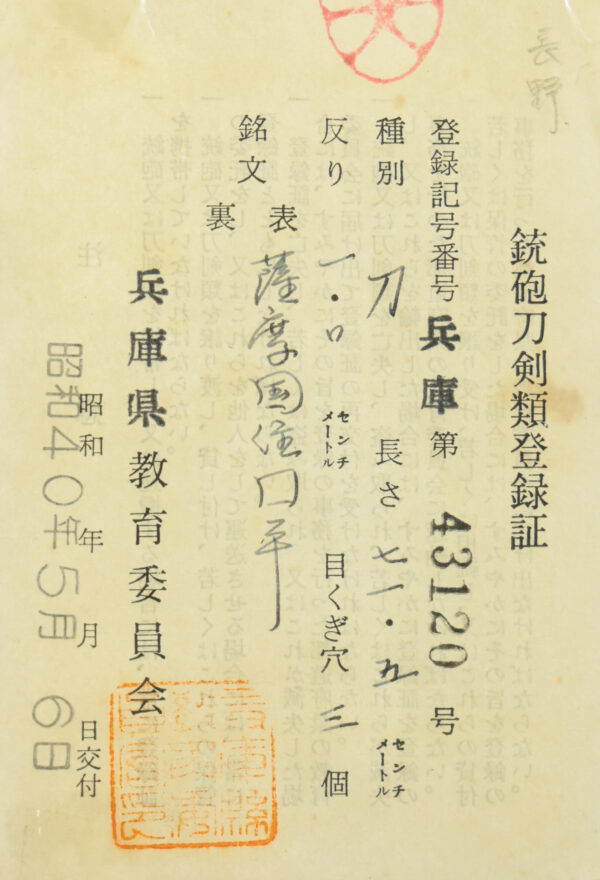 長野
銃砲刀剣類登録証
登録記号番号 兵庫 第 43120 号
種別 刀 長さ 七一・五 センチメートル
反り 一・ロ センチメートル 目くぎ穴 三 個
銘文 表 薩摩国住口平
裏
兵庫県教育委員会
昭和 年 月 日交付
昭和40年5月6日